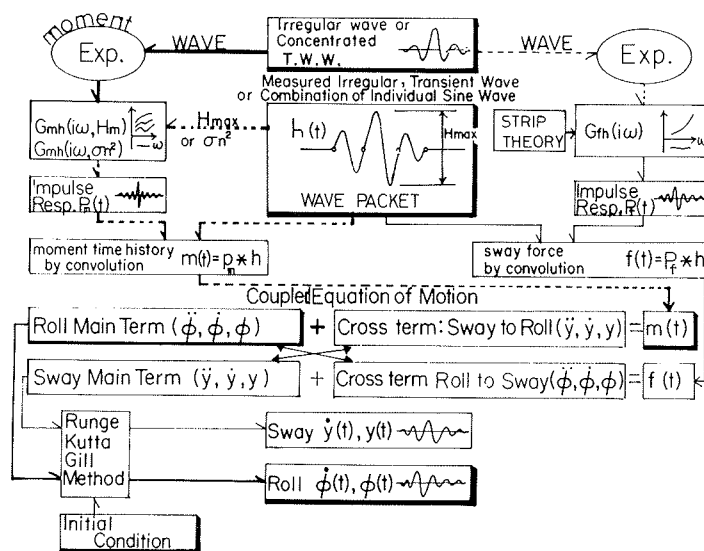 moment
Exp.
WAVE
Irregular wave or
Concentrated
T.W.W.
WAVE
Exp.
Measured Irregular, Transient Wave
or Combination of Individual Sine Wave
Gmh(iω,Hm)
Gmh(iω,σn²)
ω
Hmax
or σn²
h(t)
Hmax
WAVE PACKET
STRIP
THEORY
Gfh(iω)
ω
Impulse
Resp. Pm(t)
Impulse
Resp. Pf(t)
moment time history
by convolution m(t)=pm*h
sway force
by convolution f(t)=Pf*h
Couplet Equation of Motion
Roll Main Term (φ̈, φ̇, φ) + Cross term: Sway to Roll (ÿ, ẏ, y) = m(t)
Sway Main Term (ÿ, ẏ, y) + Cross term Roll to Sway (φ̈, φ̇, φ) = f(t)
Runge
Kutta
Gill
Method
Sway ẏ(t), y(t)
Roll φ̇(t), φ(t)
Initial
Condition